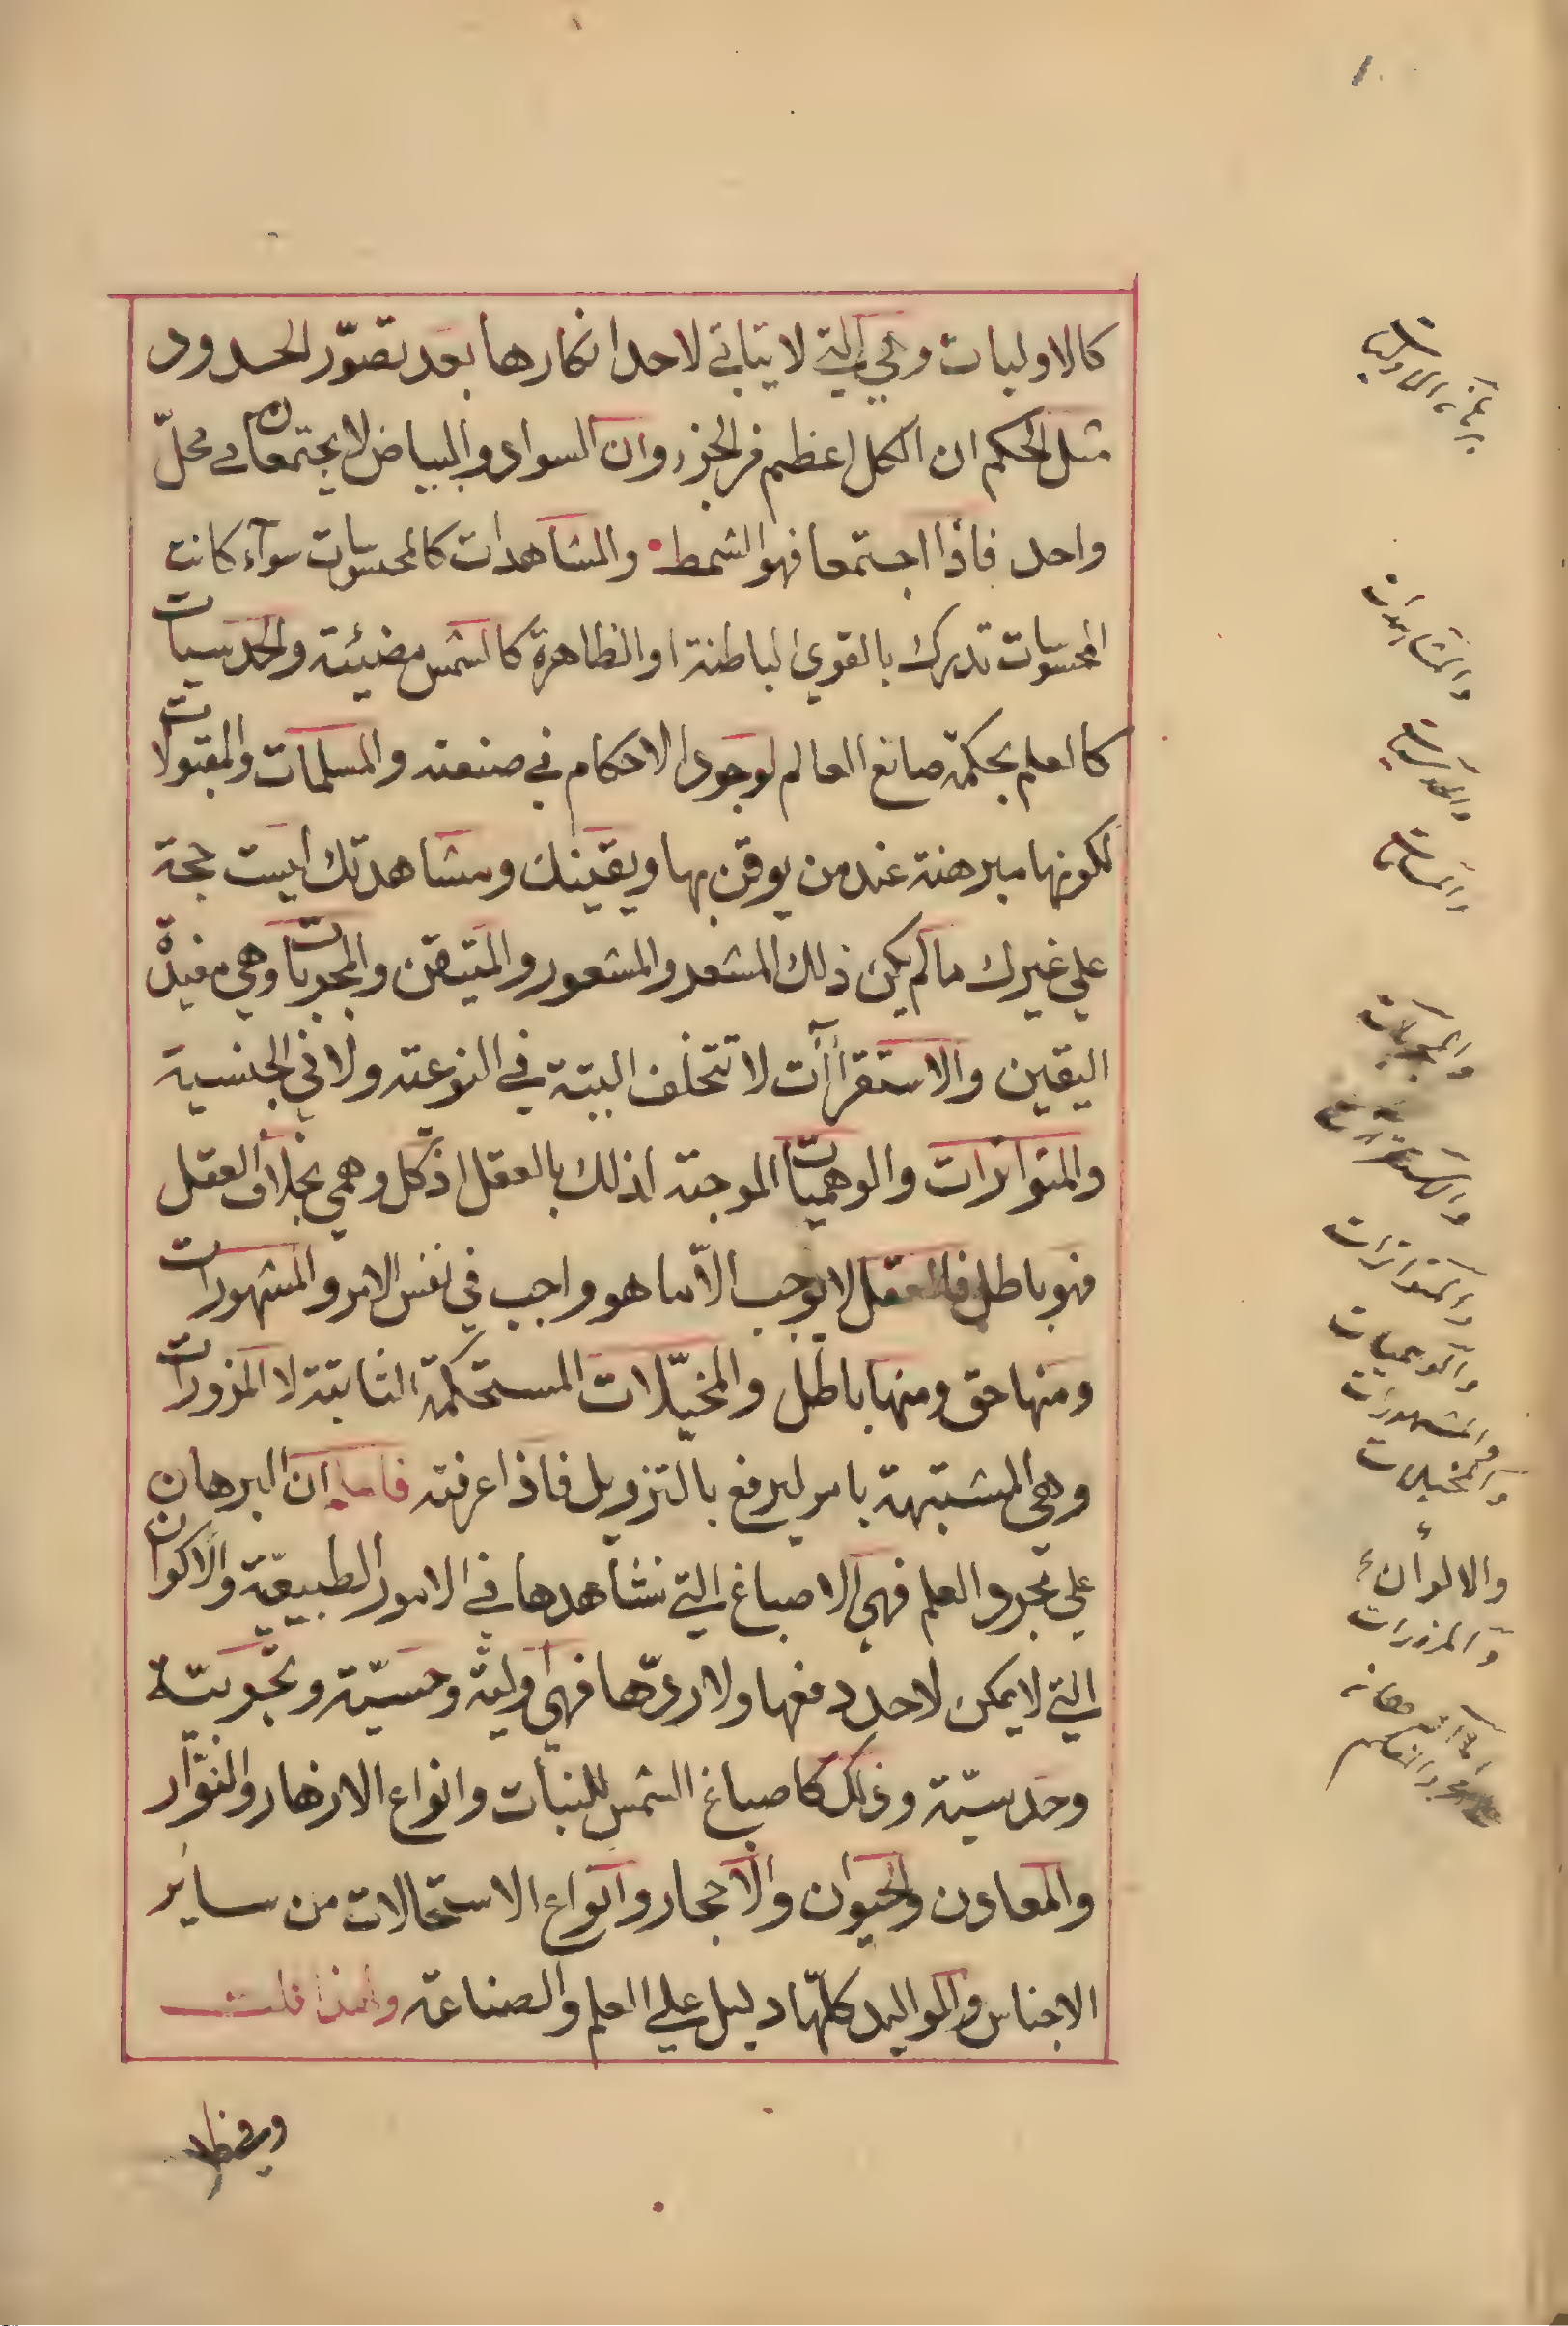 كالاوليات وهي التي لا يتاتى لاحد انكارها بعد تصوّر الحدود
مثل الحكم ان الكل اعظم من الجزء وان السواد والبياض لا يجتمعان في محلّ
واحد فاذا اجتمعا فهو الشمط والمشاهدات كالمحسوسات سوآء كانت
المحسوسات تدرك بالقوي الباطنة او الظاهرة كالشمس مضيئة والحدسيات
كالعلم بحكمة صانع العالم لوجود الاحكام في صنعته والمسلمات والمقبولات
لكونها مبرهنة عند من يوقن بها ويقينك ومشاهدتك ليست حجة
علي غيرك ما لم يكن ذلك المشعر والمشعور والمتيقن والمجربات وهي مفيدة
اليقين والاستقراآت لا تتخلف البتة في النوعية ولا في الجنسية
والمتواترات والوهميات الموجبة لذلك بالعقل اذ كل وهمي بخلاف العقل
فهو باطل فالعقل لا يوجب الّا ما هو واجب في نفس الامر والمشهورات
ومنها حق ومنها باطل والمخيّلات المستحكمة الثابتة لا المزورات
وهي المشتبهة بامر ليرفع بالتزويل فاذا عرفته فاما ان البرهان
علي مجرد العلم فهي الاصباغ التي نشاهدها في الامور الطبيعيّة والاكوان
التي لا يمكن لاحد دفعها ولا ردّها فهي اولية وحسيّة وتجربيّة
وحدسيّة وذلك كاصباغ الشمس للنبات وانواع الازهار والنوّار
والمعادن والحيوان والاحجار وانواع الاستحالات من ساير
الاجناس والمواليد كلّها دليل علي العلم والصناعة ولهذا قلت
والمشاهدات
والحدسيات
والمسلمات
والمجربات
والمتواترات
والوهميات
والمشهورات
والمخيلات
والالوان
والمزورات